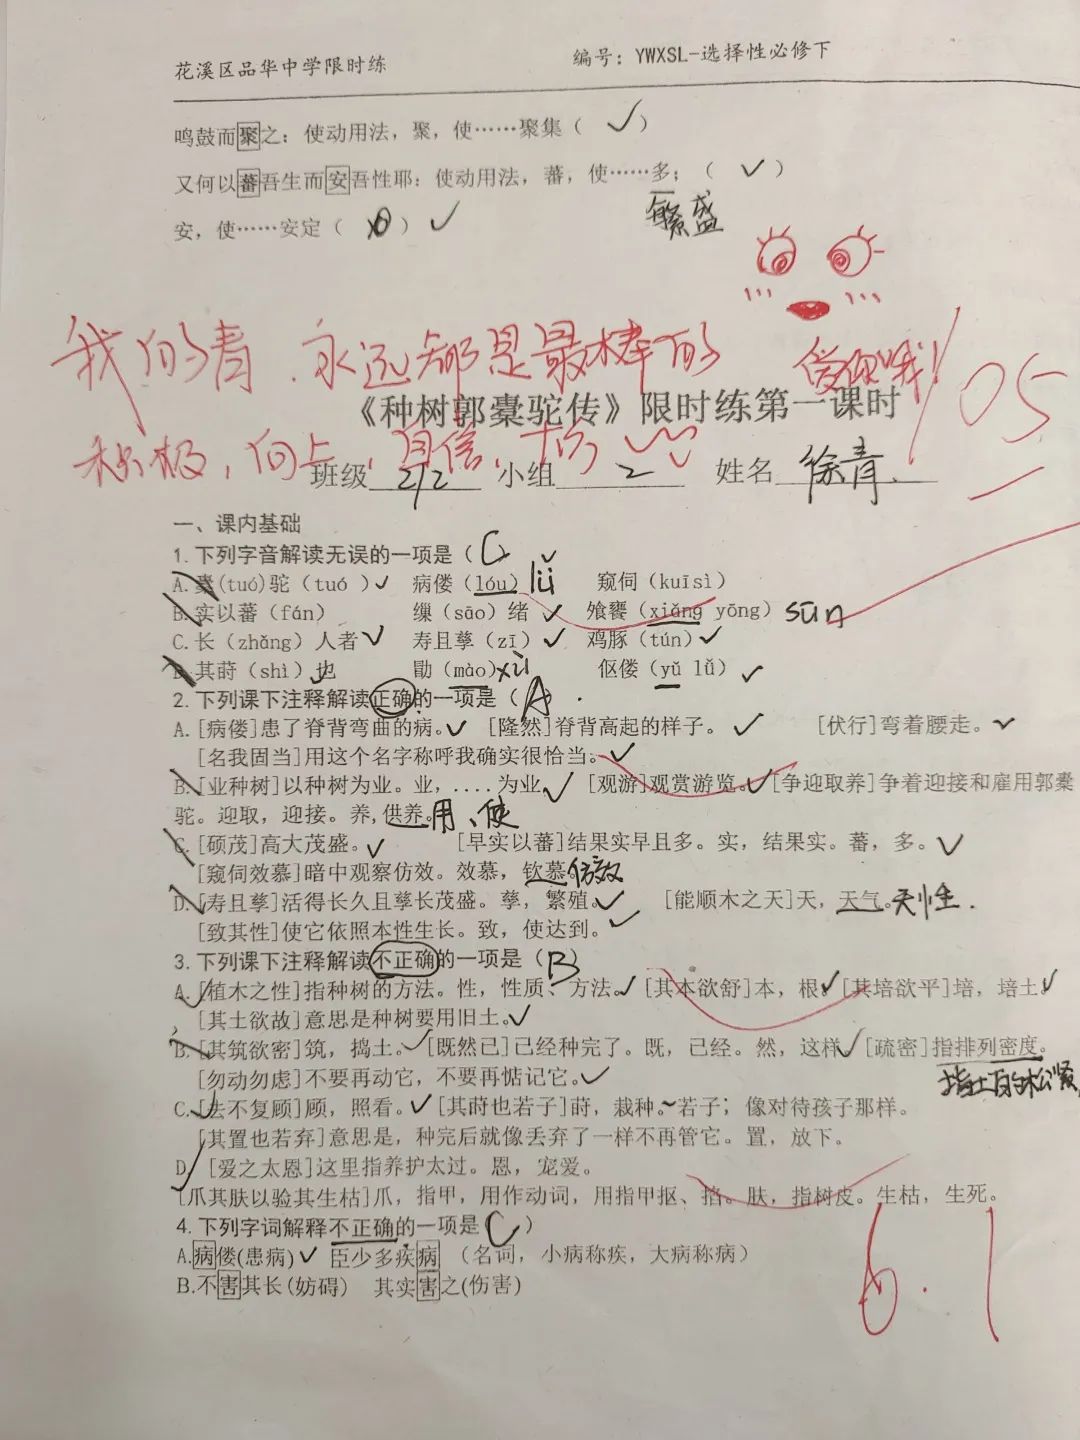 花溪区品华中学限时练 编号：YWXSL-选择性必修下
鸣鼓而聚之：使动用法，聚，使……聚集（ ✓ ）
又何以蕃吾生而安吾性耶：使动用法，蕃，使……多；（ ✓ ）
繁盛
安，使……安定（ ） ✓
我的青，永远都是最棒的 爱你哦！
105
《种树郭橐驼传》限时练第一课时
积极，向上，自信，
班级 212 小组 2 姓名 徐青
一、课内基础
1.下列字音解读无误的一项是（ C ）
A.橐(tuó)驼（tuó ）✓ 病偻（lóu）lǚ 窥伺（kuīsì）
B.实以蕃（fán） 缫（sāo）绪 ✓ 飧饔（xiǎng yōng）sūn
C.长（zhǎng）人者 ✓ 寿且孳（zī）✓ 鸡豚（tún）✓
D.其莳（shì）也 勖（mào）xù 伛偻（yǔ lǚ）✓
2.下列课下注释解读正确的一项是（ A ）
A.[病偻]患了脊背弯曲的病。✓ [隆然]脊背高起的样子。✓ [伏行]弯着腰走。✓
[名我固当]用这个名字称呼我确实很恰当。✓
B.[业种树]以种树为业。业，....为业✓ [观游]观赏游览。✓[争迎取养]争着迎接和雇用郭橐
驼。迎取，迎接。养,供养。用、使
C.[硕茂]高大茂盛。✓ [早实以蕃]结果实早且多。实，结果实。蕃，多。✓
[窥伺效慕]暗中观察仿效。效慕，钦慕 仿效
D.[寿且孳]活得长久且孳长茂盛。孳，繁殖。✓ [能顺木之天]天，天气。天性.
[致其性]使它依照本性生长。致，使达到。✓
3.下列课下注释解读不正确的一项是（ B ）
A.[植木之性]指种树的方法。性，性质、方法。✓ [其本欲舒]本，根。✓[其培欲平]培，培土✓
[其土欲故]意思是种树要用旧土。✓
B.[其筑欲密]筑，捣土。✓[既然已]已经种完了。既，已经。然，这样✓ [疏密]指排列密度。
[勿动勿虑]不要再动它，不要再惦记它。✓ 指土的松紧
C.[去不复顾]顾，照看。✓ [其莳也若子]莳，栽种。若子；像对待孩子那样。
[其置也若弃]意思是，种完后就像丢弃了一样不再管它。置，放下。
D.[爱之太恩]这里指养护太过。恩，宠爱。
[爪其肤以验其生枯]爪，指甲，用作动词，用指甲抠、掐。肤，指树皮。生枯，生死。
4.下列字词解释不正确的一项是（ C ）
A.病偻(患病)✓ 臣少多疾病 （名词，小病称疾，大病称病）
B.不害其长(妨碍) 其实害之(伤害)
6.1